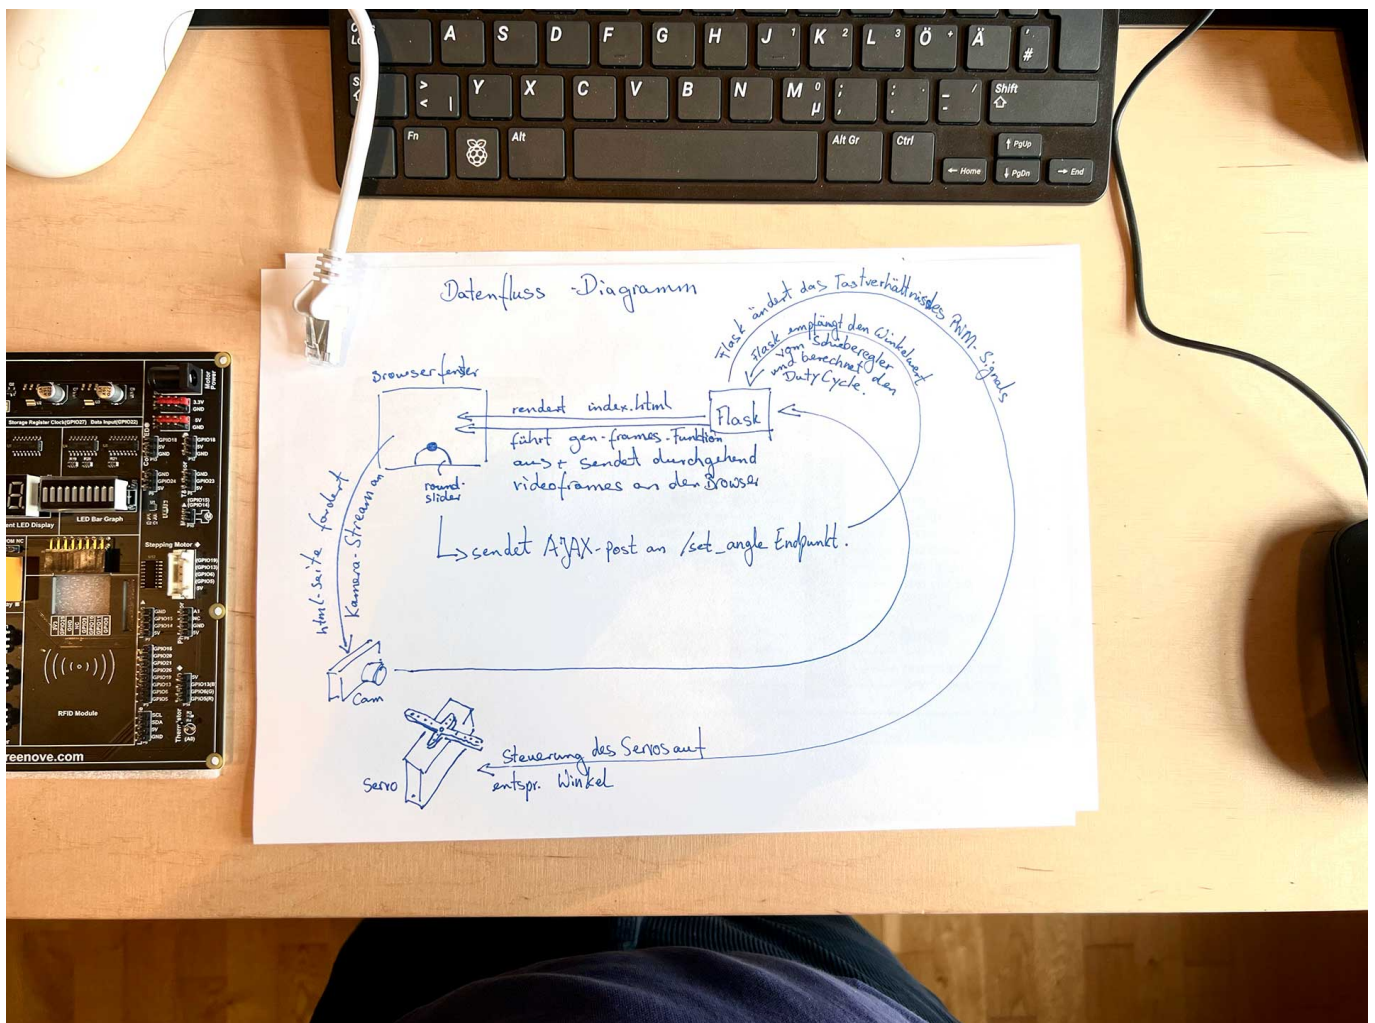 A S D F G H J 1 K 2 L 3 Ö + Ä ' #
> < | Y X C V B N M 0 µ ; , : . _ - / Shift
Fn Alt Alt Gr Ctrl ↑ PgUp
← Home ↓ PgDn → End
Datenfluss-Diagramm
Flask ändert das Tastverhältnis des PWM-Signals
Flask empfängt den Winkelwert
vom Schieberegler
und berechnet den
DutyCycle.
Browserfenster
rendert index.html
Flask
führt gen-frames-Funktion
aus + sendet durchgehend
videoframes an den Browser
round-
slider
sendet AJAX-post an /set_angle Endpunkt.
html-seite fordert
Kamera-Stream an
Cam
Servo
Steuerung des Servos auf
entspr. Winkel
Motor
Power
3.3V
GND
5V
GND
Storage Register Clock(GPIO27) Data Input(GPIO22)
GPIO18
5V
GND
GPIO24
GPIO23
LED Bar Graph
Stepping Motor
RFID Module
SCL
SDA
5V
GND
reenove.com